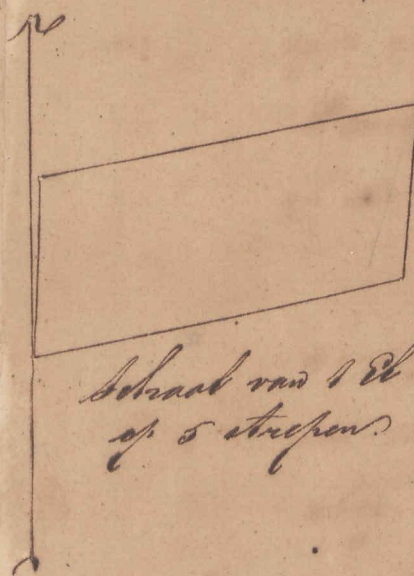 N
Schaal van 1 El
op 5 strepen.